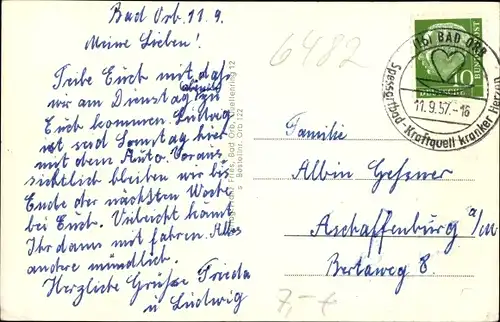 Bad Orb, 11.9.
Meine Lieben!
Teile Euch mit daß
wir am Dienstag abend zu
Euch kommen. Ludwig
ist seid Sonntag hier
mit dem Auto. Voraus
sichtlich bleiben wir bis
Ende der nächsten Woche
bei Euch. Vieleicht könnt
Ihr dann mit fahren. Alles
andere mündlich.
Herzliche Grüße Frieda
u Ludwig
Fries, Bad Orb, Quellenring 12
Bestellnr. Orb 122
6482
(16) BAD ORB
11.9.57.-16
Spessartbad-Kraftquell kranker Herzen
10
DEUTSCHE
BUNDESPOST
Familie
Albin Gessner
Aschaffenburg a/M
Bertaweg 8.
7,-